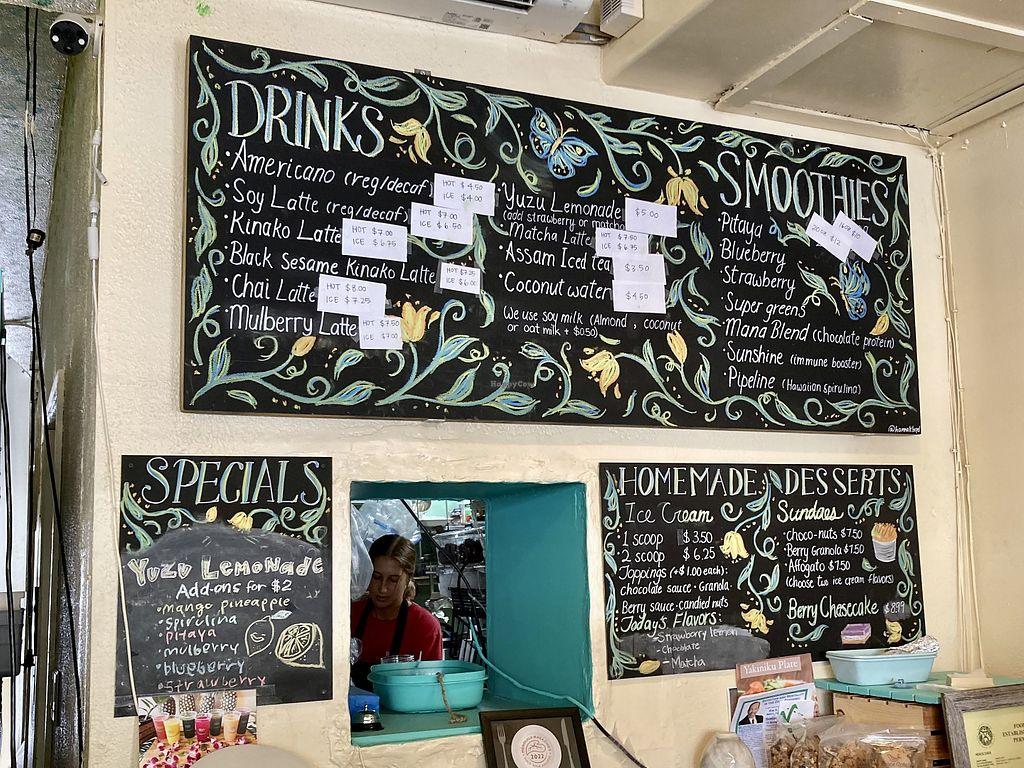 DRINKS
Americano (reg/decaf)
HOT $4.50
ICE $4.00
Soy Latte (reg/decaf)
HOT $7.00
ICE $6.50
Kinako Latte
HOT $7.00
ICE $6.75
Black Sesame Kinako Latte
HOT $7.25
ICE $6.00
Chai Latte
HOT $8.00
ICE $7.25
Mulberry Latte
HOT $7.50
ICE $7.00
Yuzu Lemonade
$5.00
(add strawberry or matcha
Matcha Latte
HOT $7.50
ICE $6.75
Assam Iced tea
$3.50
Coconut water
$4.50
We use soy milk (Almond, coconut
or oat milk + $0.50)
HappyCow
SMOOTHIES
Pitaya
20oz $12
16oz $10
Blueberry
Strawberry
Super greens
Mana Blend (chocolate protein)
Sunshine (immune booster)
Pipeline (Hawaiian spirulina)
SPECIALS
Yuzu Lemonade
Add-ons for $2
• mango pineapple
• spirulina
• pitaya
• mulberry
• blueberry
• strawberry
HOMEMADE DESSERTS
Ice Cream
1 scoop $3.50
2 scoop $6.25
Toppings (+$1.00 each):
chocolate sauce · Granola
Berry sauce · candied nuts
Today's Flavors:
- Strawberry lemon
- Chocolate
- Matcha
Sundaes
· Choco-nuts $7.50
· Berry Granola $7.50
· Affogato $7.50
(choose two ice cream flavors)
Berry Cheesecake $8.99
Yakiniku Plate
2022